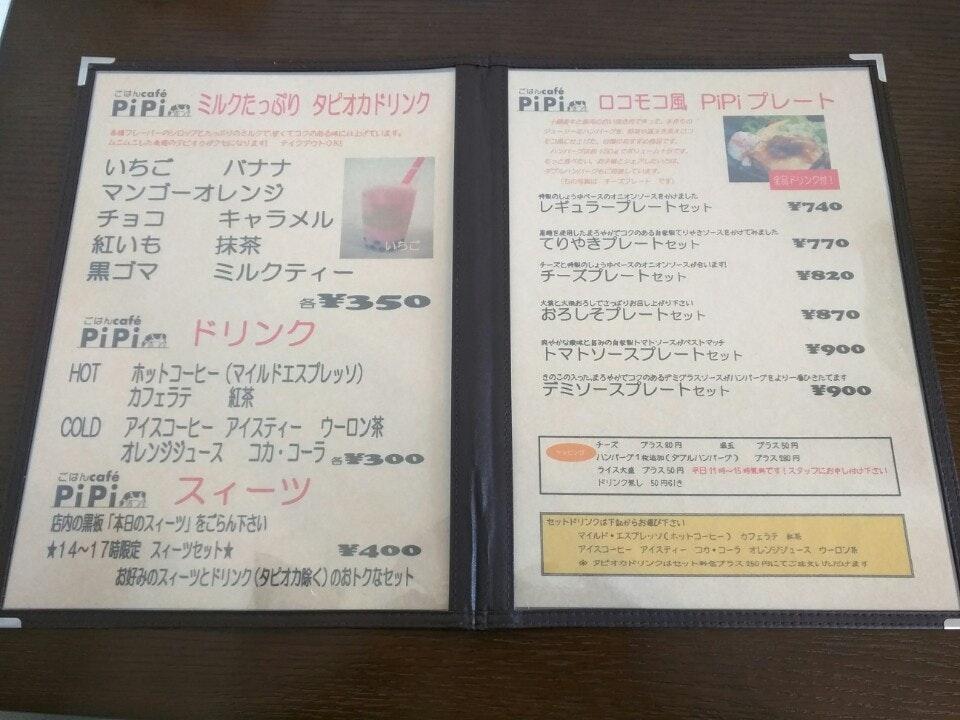 ごはんcafé
PiPi ミルクたっぷり タピオカドリンク
各種フレーバーのシロップとたっぷりのミルクで甘くてコクのある味に仕上げています。
いちご バナナ
マンゴーオレンジ
チョコ キャラメル
紅いも 抹茶
黒ゴマ ミルクティー
いちご
各¥350
ごはんcafé
PiPi ドリンク
HOT ホットコーヒー(マイルドエスプレッソ)
カフェラテ 紅茶
COLD アイスコーヒー アイスティー ウーロン茶
オレンジジュース コカ・コーラ 各¥300
ごはんcafé
PiPi スィーツ
店内の黒板「本日のスィーツ」をごらん下さい
★14～17時限定 スィーツセット★ ¥400
お好みのスィーツとドリンク(タピオカ除く)のおトクなセット
ごはんcafé
PiPi ロコモコ風 PiPiプレート
全品ドリンク付!
特製のしょうゆベースのオニオンソースをかけました
レギュラープレートセット ¥740
黒糖を使用したまろやかでコクのある自家製てりやきソースをかけてみました
てりやきプレートセット ¥770
チーズと特製のしょうゆベースのオニオンソースが合います!
チーズプレートセット ¥820
大葉と大根おろしでさっぱりお召し上がり下さい
おろしそプレートセット ¥870
爽やかな酸味と旨みの自家製トマトソースがベストマッチ
トマトソースプレートセット ¥900
きのこの入った、まろやかでコクのあるデミグラスソースがハンバーグをより一層ひきたてます
デミソースプレートセット ¥900
トッピング
チーズ プラス80円 温玉 プラス50円
ハンバーグ1枚追加(ダブルハンバーグ) プラス280円
ライス大盛 プラス50円 平日11時～15時無料です!スタッフにお申し付け下さい
ドリンク無し 50円引き
セットドリンクは下記からお選び下さい
マイルド・エスプレッソ(ホットコーヒー) カフェラテ 紅茶
アイスコーヒー アイスティー コカ・コーラ オレンジジュース ウーロン茶
※ タピオカドリンクはセット料金プラス250円にてご注文いただけます